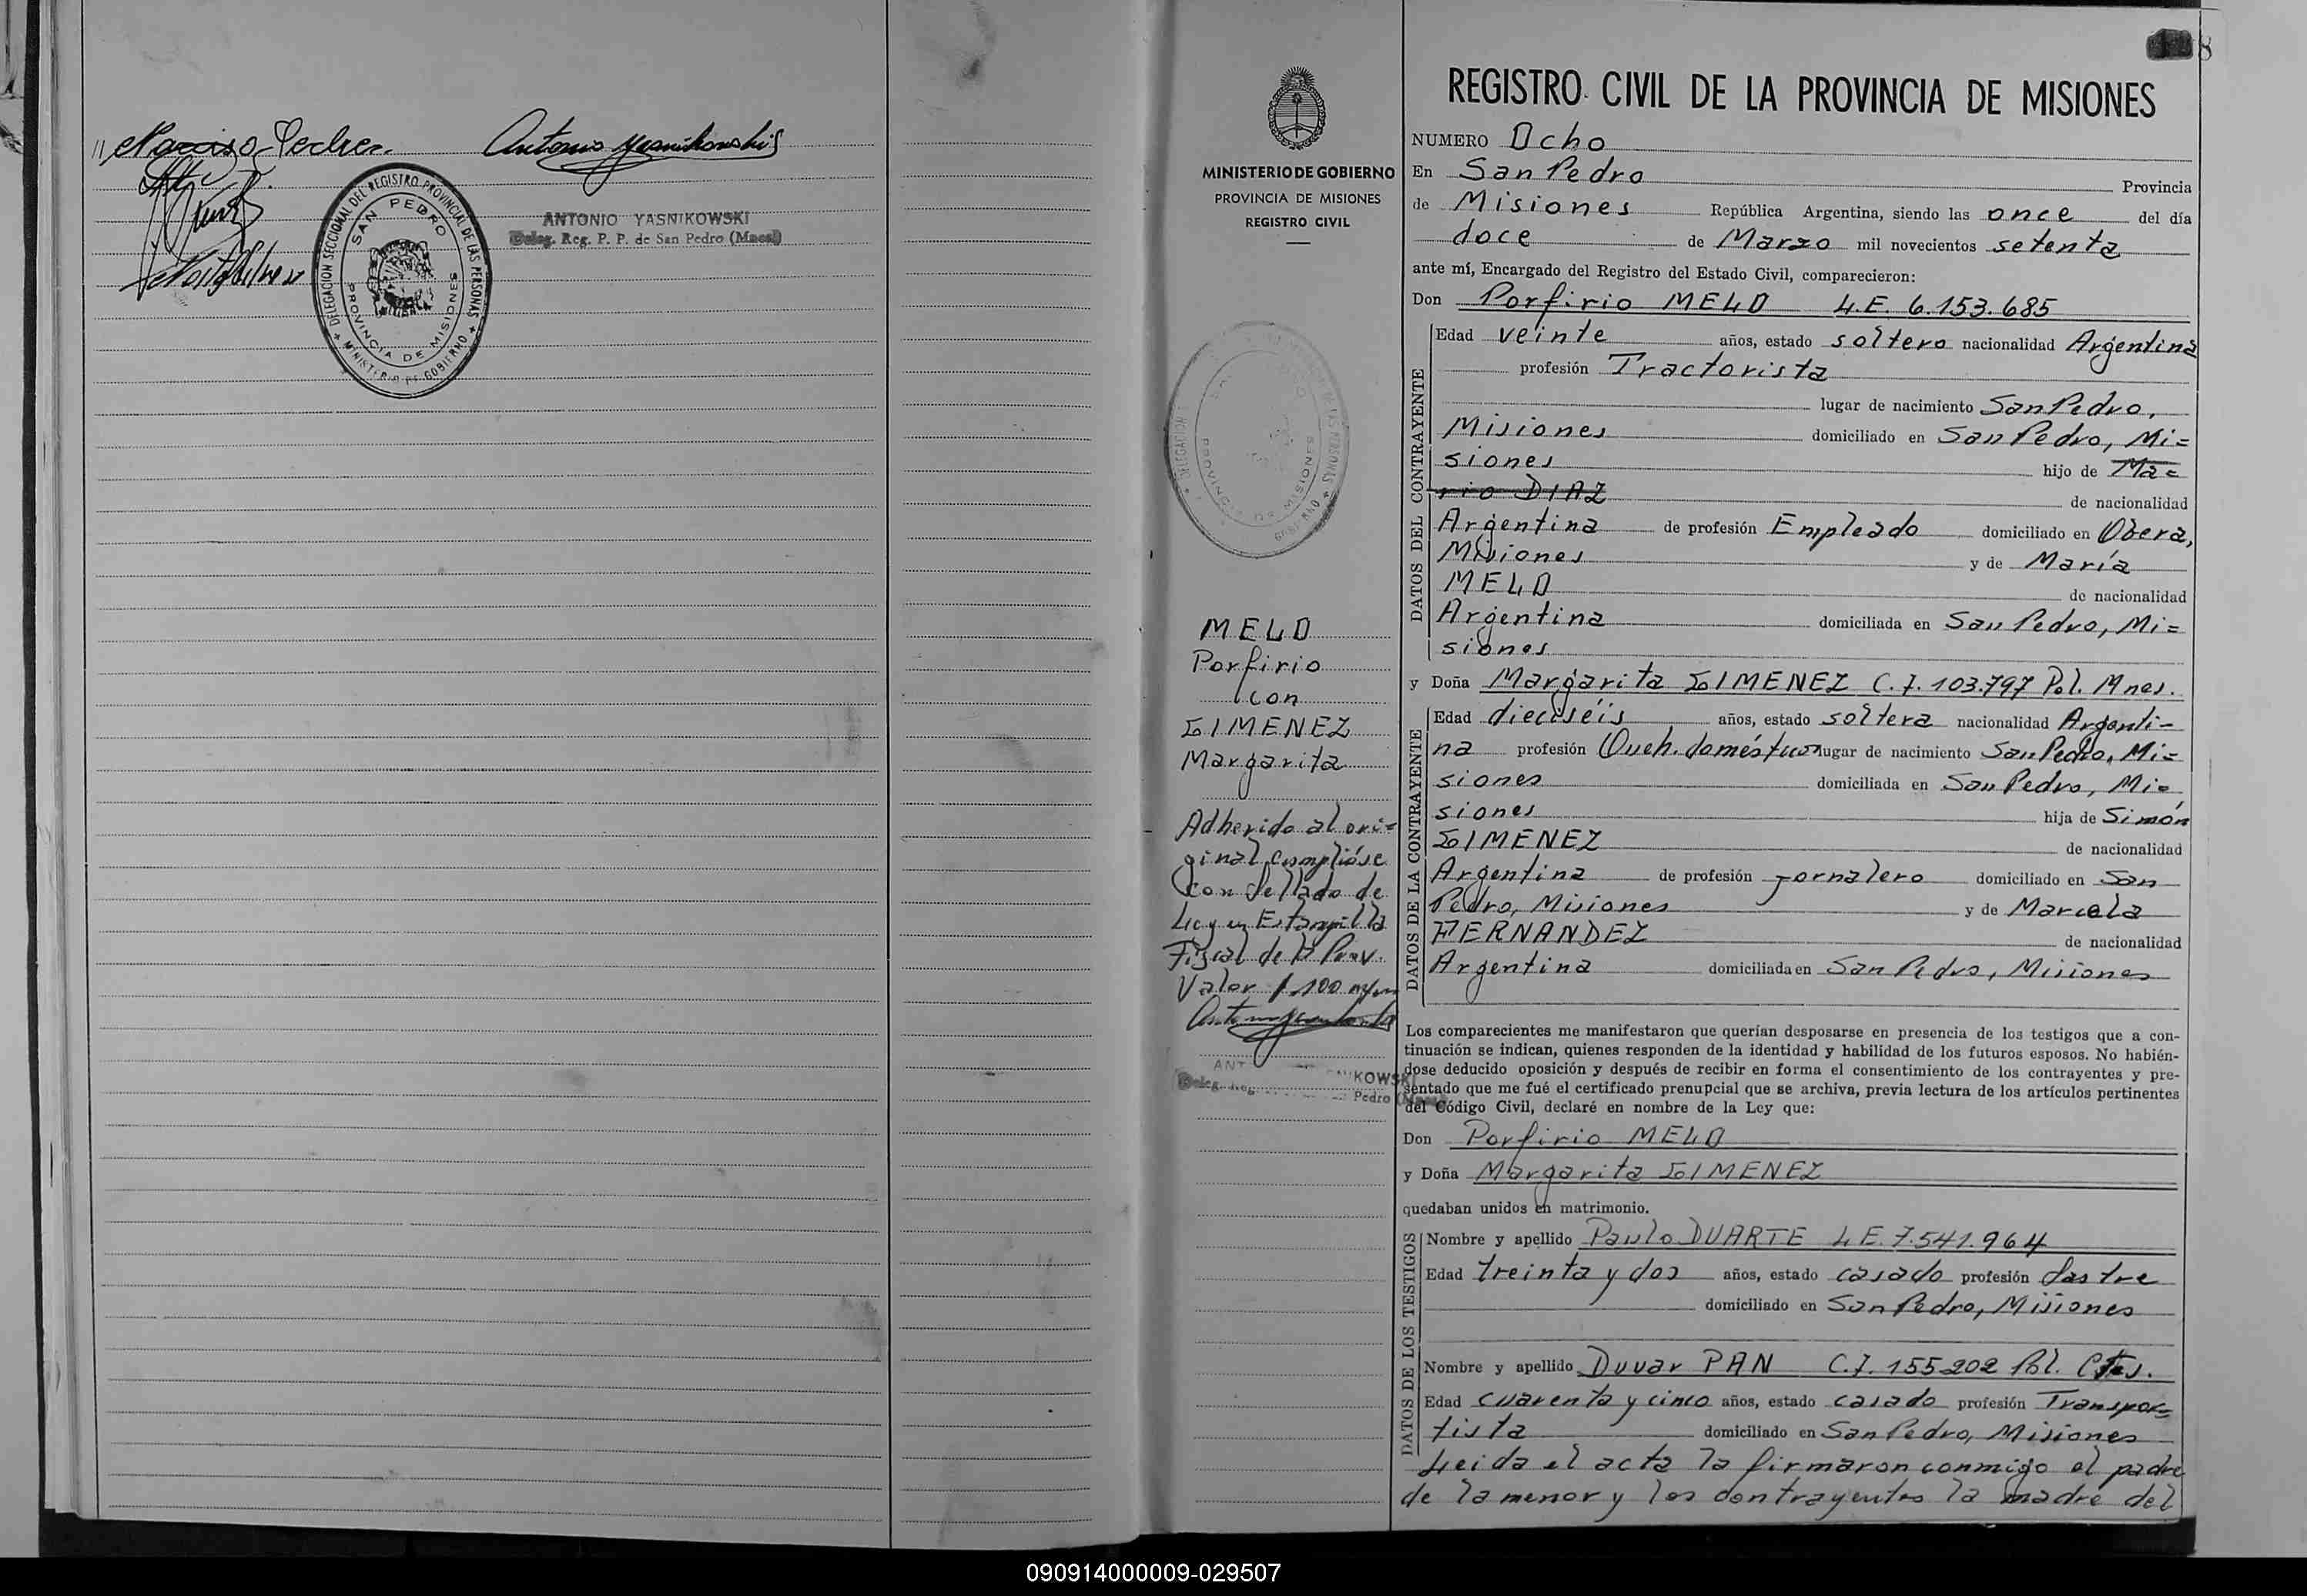 Antonio Yasnikowski
ANTONIO YASNIKOWSKI
Deleg. Reg. P. P. de San Pedro (Mnes)
DELEGACION SECCIONAL DEL REGISTRO PROVINCIAL DE LAS PERSONAS
SAN PEDRO
PROVINCIA DE MISIONES
MINISTERIO DE GOBIERNO
MINISTERIO DE GOBIERNO
PROVINCIA DE MISIONES
REGISTRO CIVIL
MELO
Porfirio
con
GIMENEZ
Margarita
Adherido al ori=
ginal cumplióse
con sellado de
Ley en Estampilla
Fiscal de la Prov.
Valor $ 100 m/n
KOWSKI
Pedro (Mnes)
8
REGISTRO CIVIL DE LA PROVINCIA DE MISIONES
NUMERO Ocho
En San Pedro Provincia
de Misiones República Argentina, siendo las once del día
doce de Marzo mil novecientos setenta
ante mí, Encargado del Registro del Estado Civil, comparecieron:
Don Porfirio MELO L.E. 6.153.685
DATOS DEL CONTRAYENTE
Edad veinte años, estado soltero nacionalidad Argentina
profesión Tractorista
lugar de nacimiento San Pedro,
Misiones domiciliado en San Pedro, Mi=
siones hijo de Ma=
rio DIAZ de nacionalidad
Argentina de profesión Empleado domiciliado en Obera,
Misiones y de María
MELO de nacionalidad
Argentina domiciliada en San Pedro, Mi=
siones
y Doña Margarita GIMENEZ C.I. 103.797 Pol. Mnes.
DATOS DE LA CONTRAYENTE
Edad dieciséis años, estado soltera nacionalidad Argenti-
na profesión Queh. domésticos lugar de nacimiento San Pedro, Mi=
siones domiciliada en San Pedro, Mi=
siones hija de Simón
GIMENEZ de nacionalidad
Argentina de profesión Jornalero domiciliado en San
Pedro, Misiones y de Marcela
FERNANDEZ de nacionalidad
Argentina domiciliada en San Pedro, Misiones
Los comparecientes me manifestaron que querían desposarse en presencia de los testigos que a con-
tinuación se indican, quienes responden de la identidad y habilidad de los futuros esposos. No habién-
dose deducido oposición y después de recibir en forma el consentimiento de los contrayentes y pre-
sentado que me fué el certificado prenupcial que se archiva, previa lectura de los artículos pertinentes
del Código Civil, declaré en nombre de la Ley que:
Don Porfirio MELO
y Doña Margarita GIMENEZ
quedaban unidos en matrimonio.
DATOS DE LOS TESTIGOS
Nombre y apellido Paulo DUARTE L.E. 7.541.964
Edad treinta y dos años, estado casado profesión Sastre
domiciliado en San Pedro, Misiones
Nombre y apellido Duvar PAN C.I. 155202 Pol. Ctes.
Edad cuarenta y cinco años, estado casado profesión Transpor=
tista domiciliado en San Pedro, Misiones
Leida el acta la firmaron conmigo el padre
de la menor y los contrayentes la madre del
090914000009-029507